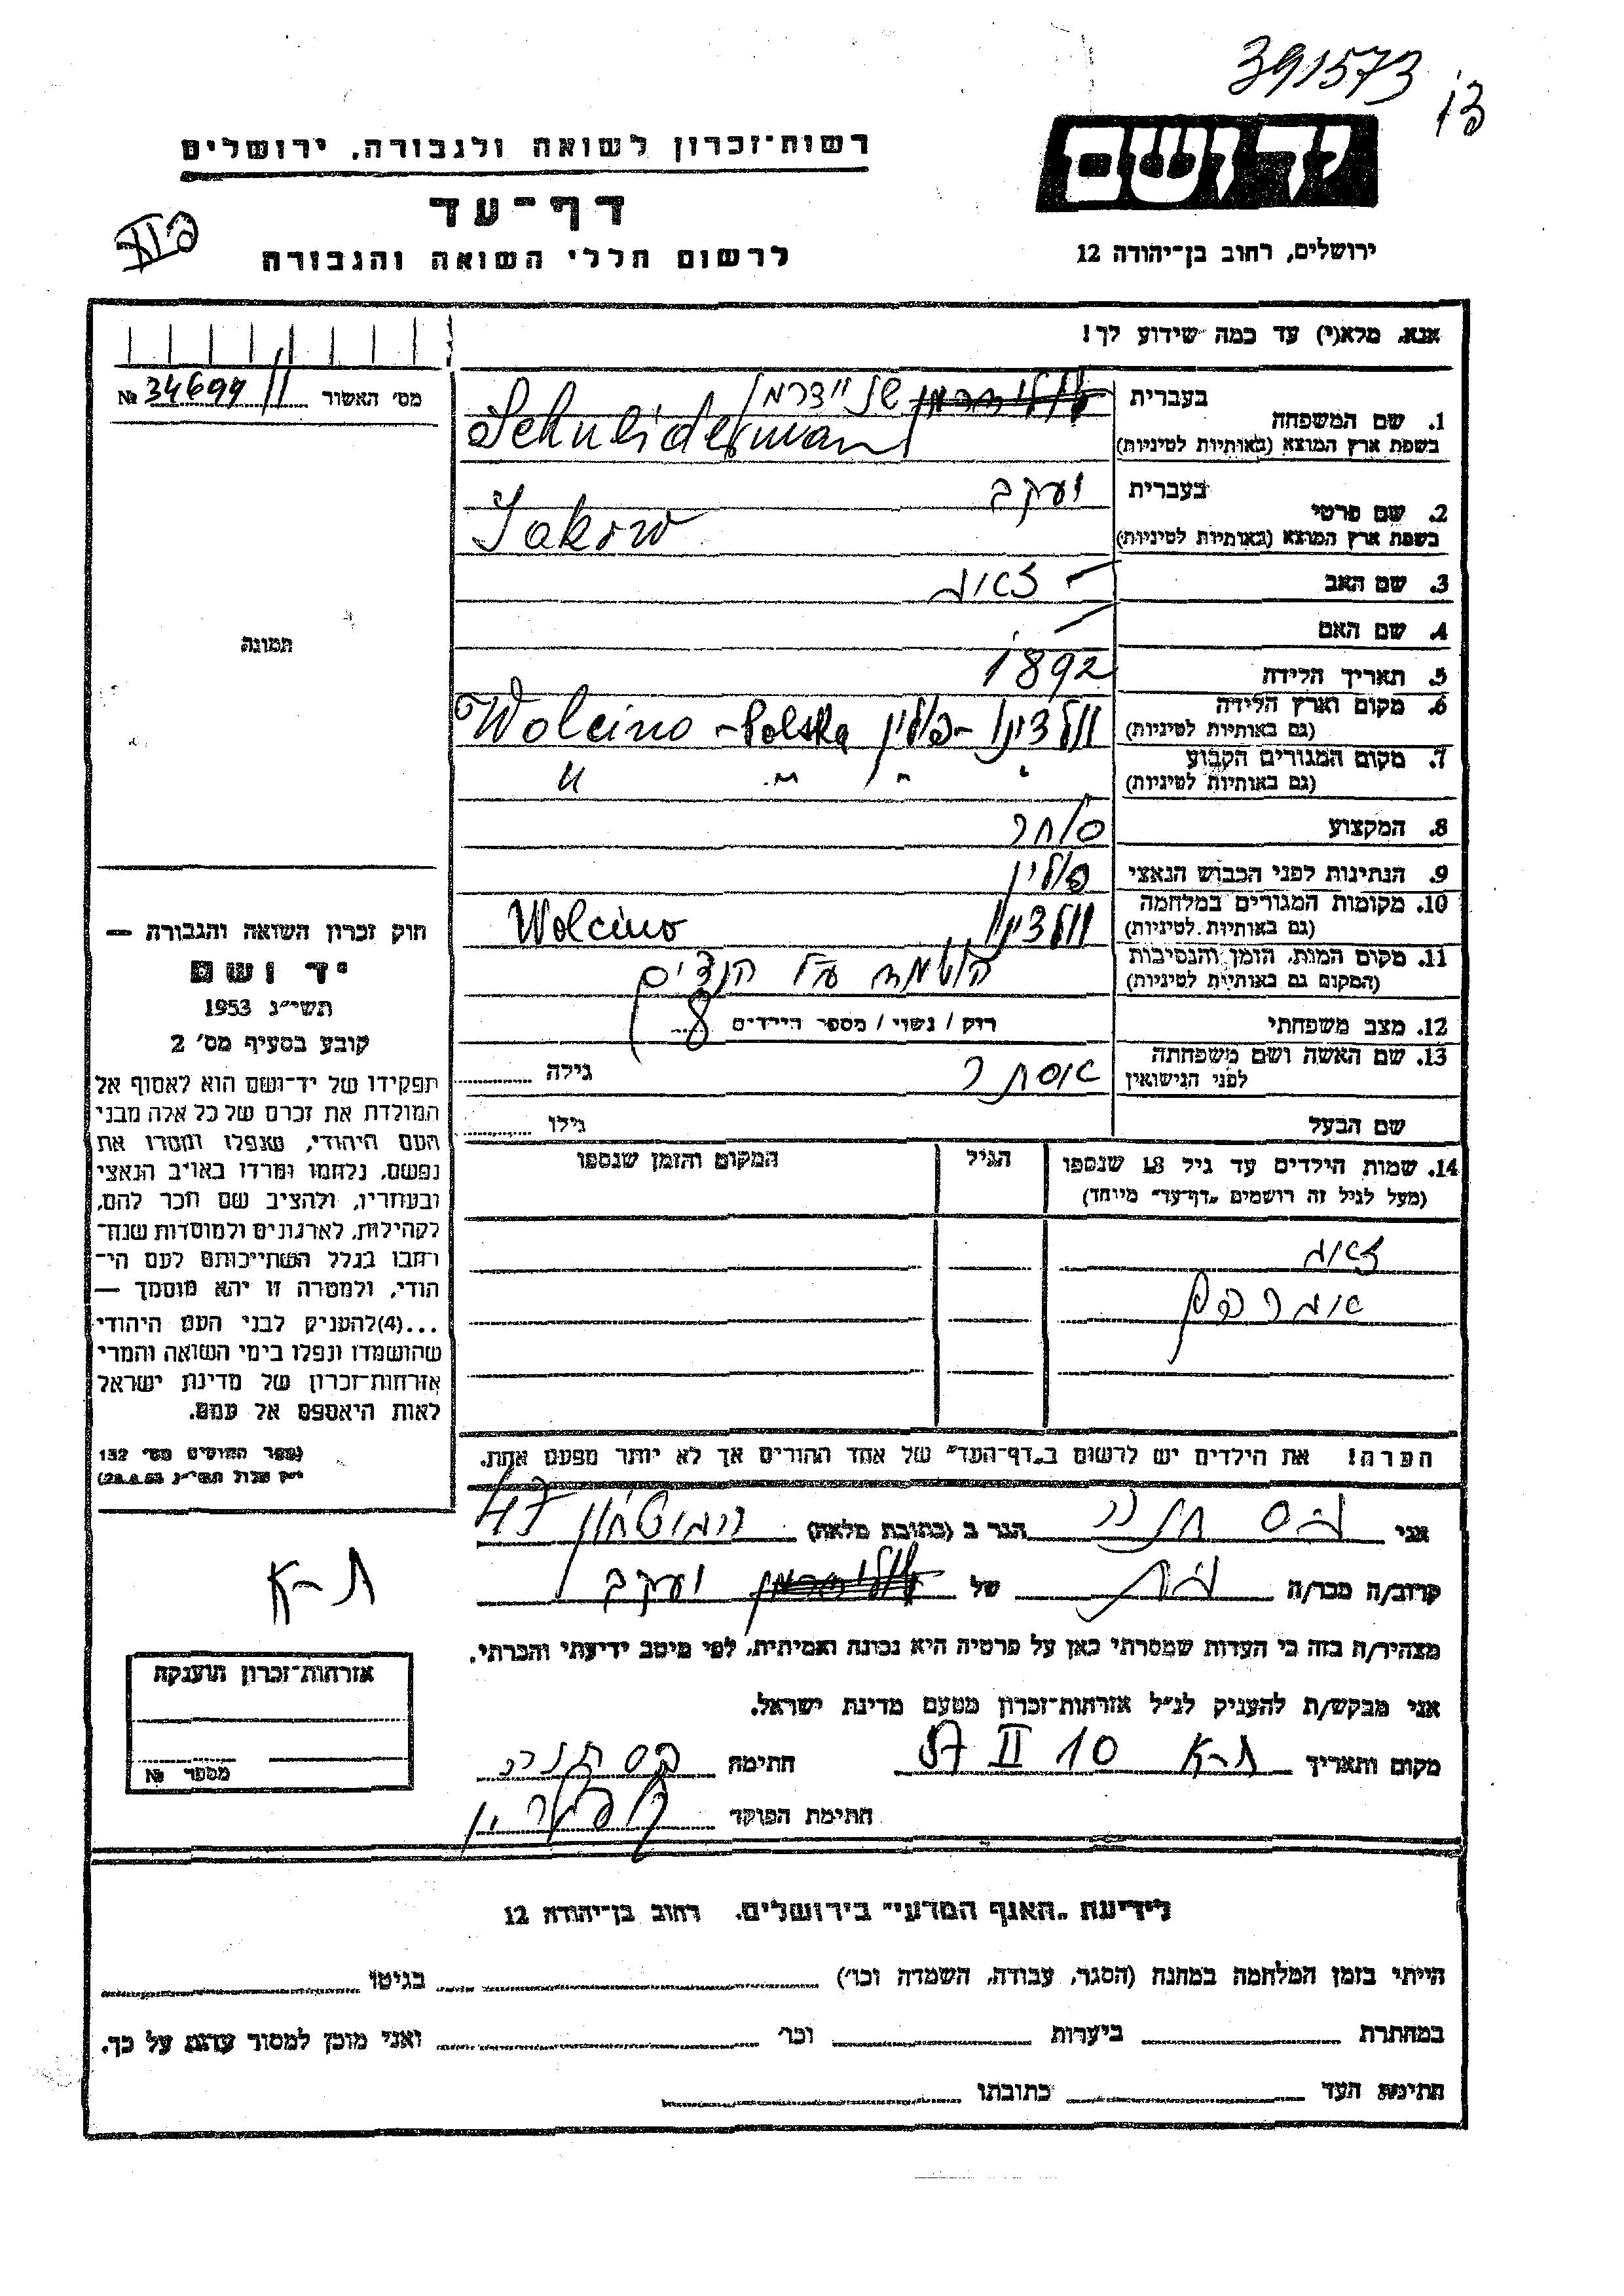 391573
יד ושם
ירושלים, רחוב בן־יהודה 12
רשות־זכרון לשואה ולגבורה, ירושלים
דף־עד
לרשום חללי השואה והגבורה
אנא, מלא(י) עד כמה שידוע לך!
מס' האשור № 34694
1. שם המשפחה
בעברית שניידרמן
בשפת ארץ המוצא (באותיות לטיניות) Schneiderman
2. שם פרטי
בעברית יעקב
בשפת ארץ המוצא (באותיות לטיניות) Jakow
3. שם האב
4. שם האם
5. תאריך הלידה 1892
6. מקום וארץ הלידה (גם באותיות לטיניות) וולצינו - פולין Wolcino - Polska
7. מקום המגורים הקבוע (גם באותיות לטיניות) " " " "
8. המקצוע סוחר
9. הנתינות לפני הכבוש הנאצי פולין
10. מקומות המגורים במלחמה (גם באותיות לטיניות) וולצינו Wolcino
11. מקום המות, הזמן והנסיבות (המקום גם באותיות לטיניות)
12. מצב משפחתי רוק / נשוי / מספר הילדים 8
13. שם האשה ושם משפחתה לפני הנישואין אסתר גילה
שם הבעל גילו
14. שמות הילדים עד גיל 18 שנספו הגיל המקום והזמן שנספו
(מעל לגיל זה רושמים "דף־עד" מיוחד)
אברהם
הערה! את הילדים יש לרשום ב"דף־העד" של אחד ההורים אך לא יותר מפעם אחת.
אני הגר ב (כתובת מלאה) 47
קרוב/ה מכר/ה בת של יעקב
מצהיר/ה בזה כי העדות שמסרתי כאן על פרטיה היא נכונה ואמיתית, לפי מיטב ידיעתי והכרתי.
אני מבקש/ת להעניק לנ"ל אזרחות־זכרון מטעם מדינת ישראל.
מקום ותאריך ת-א 10 II 57 חתימה
חתימת הפוקד
תמונה
חוק זכרון השואה והגבורה —
יד ושם
תשי"ג 1953
קובע בסעיף מס' 2
תפקידו של יד־ושם הוא לאסוף אל
המולדת את זכרם של כל אלה מבני
העם היהודי, שנפלו ומסרו את
נפשם, נלחמו ומרדו באויב הנאצי
ובעוזריו, ולהציב שם וזכר להם,
לקהילות, לארגונים ולמוסדות שנח־
רבו בגלל השתייכותם לעם הי־
הודי, ולמטרה זו יהא מוסמך —
...(4) להעניק לבני העם היהודי
שהושמדו ונפלו בימי השואה והמרי
אזרחות־זכרון של מדינת ישראל
לאות היאספם אל עמם.
(ספר החוקים מס' 132
י"ז אלול תשי"ג 28.8.53)
ת-א
אזרחות־זכרון תוענקה
מספר №
לידיעת "האגף המדעי" בירושלים, רחוב בן־יהודה 12
הייתי בזמן המלחמה במחנה (הסגר, עבודה, השמדה וכו') בגיטו
במחתרת ביערות וכו' ואני מוכן למסור עדות על כך.
חתימת העד כתובתו